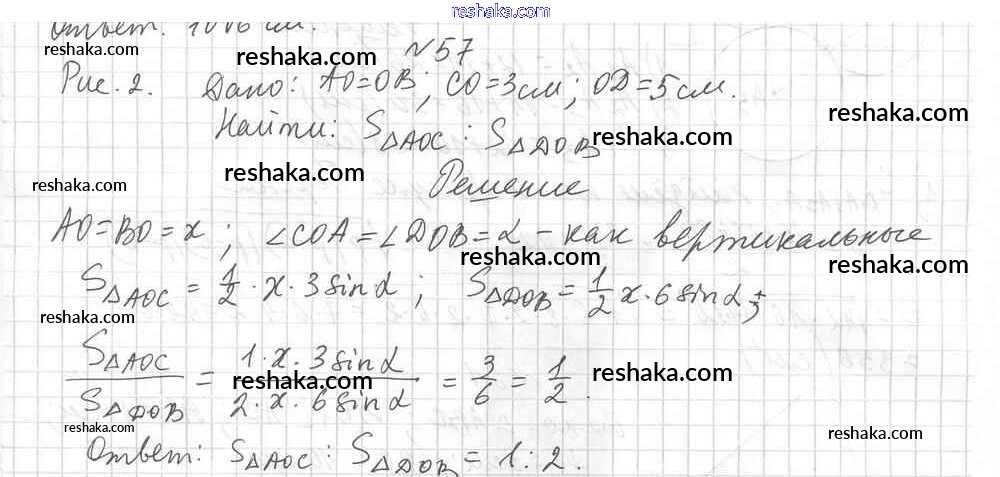 reshaka.com
Ответ: 1006 см.
reshaka.com
№57
reshaka.com
Рис. 2. Дано: AO=OB; CO=3см; OD=5см.
reshaka.com
reshaka.com
reshaka.com
Найти: S△AOC : S△DOB
reshaka.com
Решение
reshaka.com
reshaka.com
AO=BO=x; ∠COA=∠DOB=α - как вертикальные
reshaka.com
reshaka.com
S△AOC = 1/2 · x · 3 sin α; S△DOB = 1/2 x · 6 sin α;
reshaka.com
S△AOC / S△DOB = 1 · x · 3 sin α / 2 · x · 6 sin α = 3/6 = 1/2.
reshaka.com
reshaka.com
reshaka.com
reshaka.com
Ответ: S△AOC : S△DOB = 1:2.
reshaka.com